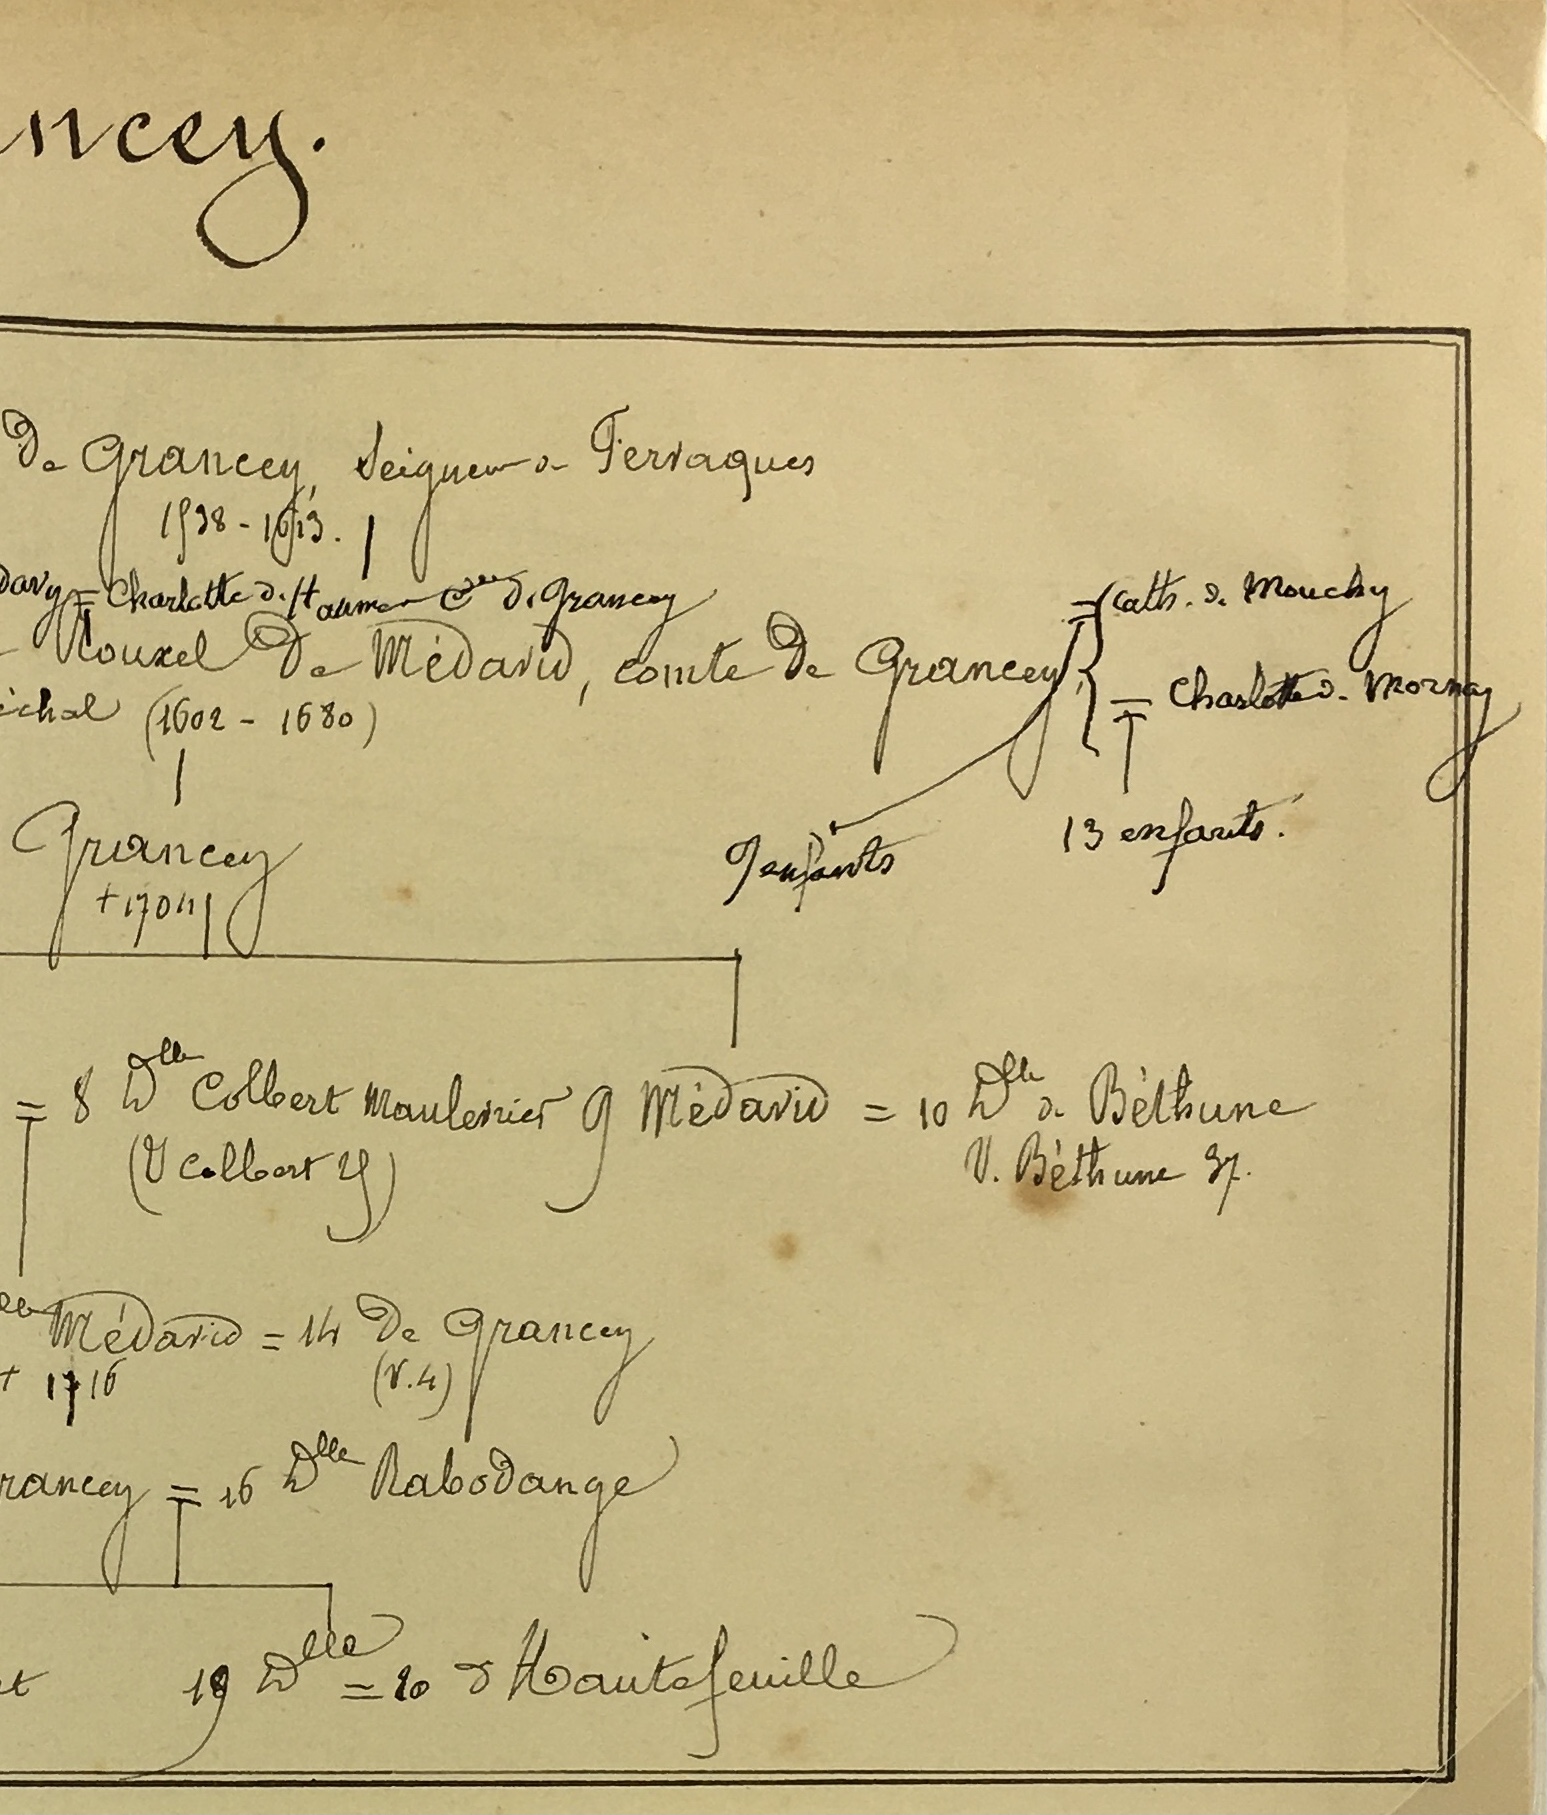 ncey.
de Grancey, Seigneur de Fervaques
1538 - 1613.
davy = Charlotte d. Haumer Ctesse d. Grancey
= Cath. d. Mouchy
Rouxel de Médavid, comte de Grancey,
= Charlotte d. Mornay
échal (1602 - 1680)
Grancey
9 enfants
13 enfants.
+ 1704
= 8 Dlle Colbert Maulevrier 9 Médavid = 10 Dlle de Béthune
(V Colbert 25)
V. Béthune 37.
Médavid = 14 de Grancey
+ 1716
(V. 4)
rancey = 16 Dlle Rabodange
et 19 Dlle = 20 d'Hautefeuille